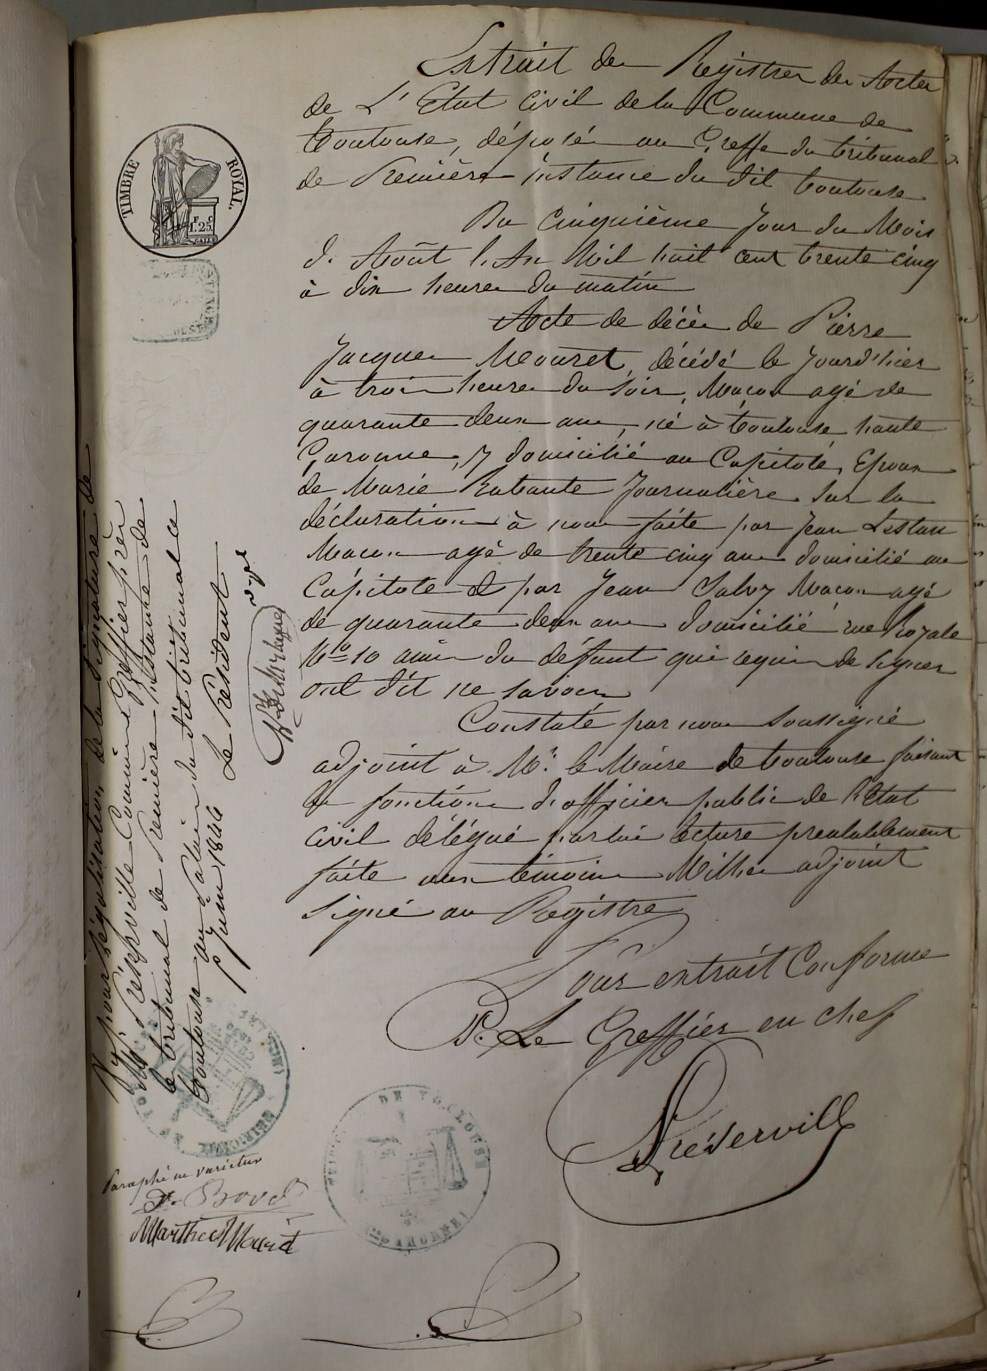 Extrait des Registres des Actes
de L'Etat Civil de la Commune de
Toulouse, déposés au Greffe du tribunal
de Première instance du dit toulouse
Du Cinquième Jour du Mois
d'Août l'An Mil huit cent trente cinq
à dix heures du matin
Acte de décès de Pierre
Jacques Mouret, décédé le Jourd'hier
à trois heures du soir, Maçon agé de
quarante deux ans, né à toulouse haute
Garonne, y domicilié au Capitole, Epoux
de Marie Journalière Sur la
déclaration à nous faite par Jean Lestau
Maçon agé de trente cinq ans domicilié au
Capitole et par Jean Salvy Maçon agé
de quarante deux ans domicilié rue Royale
No 10 amis du défunt qui requis de signer
ont dit ne savoir
Constaté par nous Soussigné
adjoint à Mr. le Maire de toulouse faisant
les fonctions d'officier public de l'Etat
civil délégué par lui lecture prealablement
faite aux témoins Milhes adjoint
signé au Registre
Pour extrait Conforme
P. Le Greffier en chef
Préserville
TIMBRE ROYAL.
1 F. 25 C
Vu pour légalisation de la signature de
Mr Préserville Commis Greffier près
le tribunal de Première Instance de
toulouse au Palais du dit tribunal ce
Juin 1844
Le Président
Paraphé ne varietur
Marthe Mouret
DE TOULOUSE